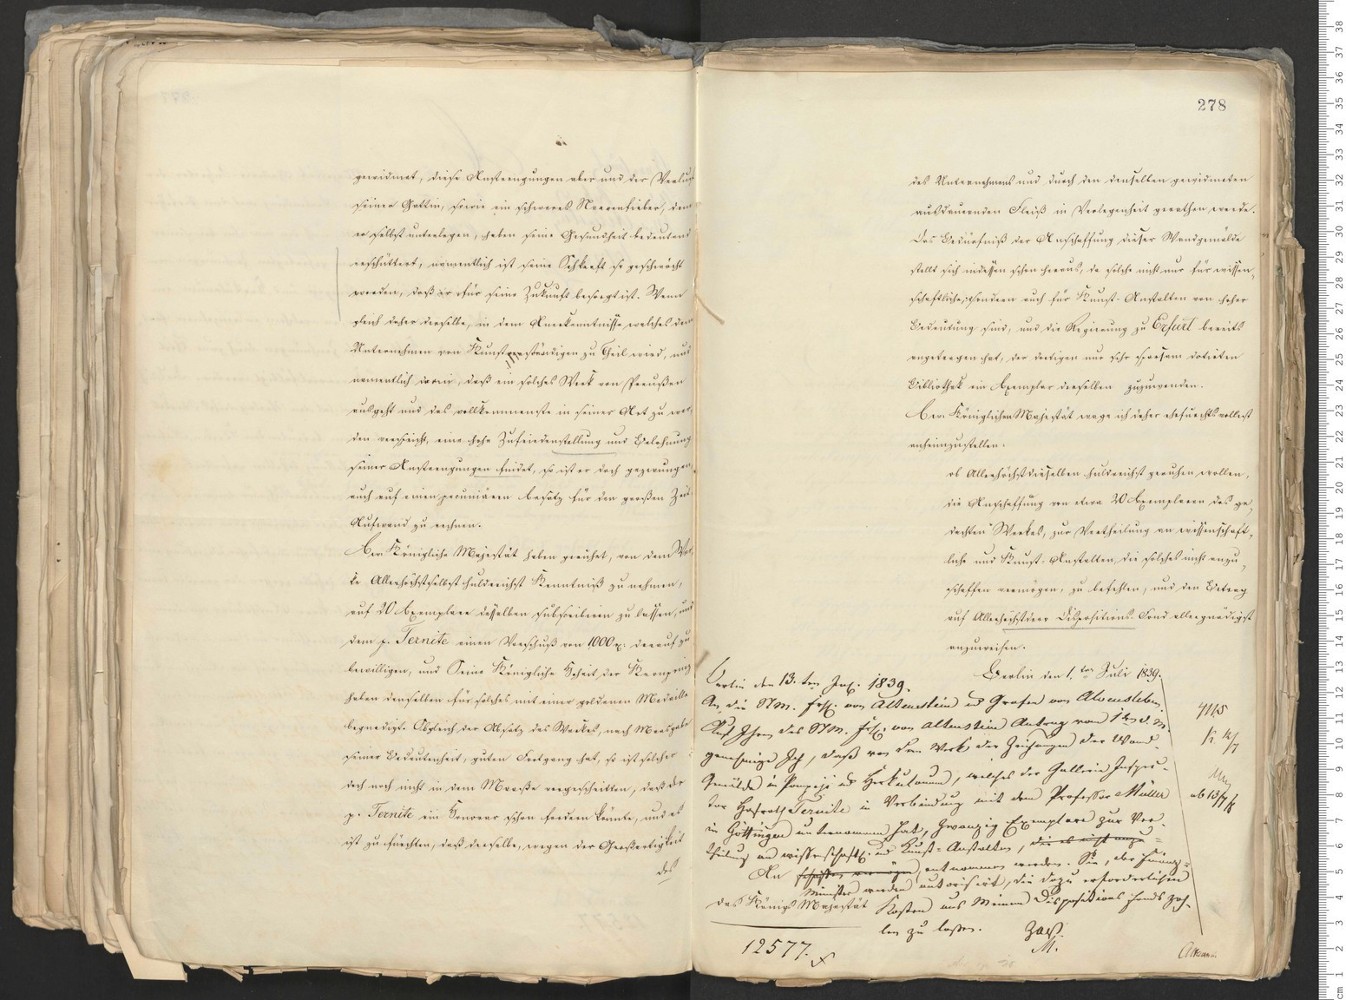 gewidmet, diese Anstrengungen aber und der Verlust
seiner Gattin, sowie ein schweres Nervenfieber, dem
er selbst unterlegen, haben seine Gesundheit bedeutend
erschüttert, namentlich ist seine Sehkraft so geschwächt
worden, daß er für seine Zukunft besorgt ist. Wenn
gleich daher derselbe, in dem Anerkenntnisse welches dem
Unternehmen von Kunstverständigen zu Theil wird, und
namentlich darin, daß ein solches Werk von Preußen
ausgeht und das vollkommenste in seiner Art zu wer-
den verspricht, eine hohe Zufriedenstellung und Belohnung
seiner Anstrengungen findet, so ist er doch gezwungen
auch auf einen pecuniären Ersatz für den großen Zeit
Aufwand zu rechnen.
Eure Königliche Majestät haben geruhet, von dem Wer-
ke Allerhöchstselbst huldreichst Kenntniß zu nehmen,
auf 20 Exemplare desselben subscribiren zu lassen, und
dem p. Ternite einen Vorschuß von 1000 r. darauf zu
bewilligen, und Seine Königliche Hoheit, der Kronprinz
haben denselben für solches mit einer goldenen Medaille
begnadigt. Obgleich der Absatz des Werkes, nach Maasgabe
seiner Bedeutenheit, guten Fortgang hat, so ist solcher
doch noch nicht in dem Maaße vorgeschritten, daß der
p. Ternite ein Honorar schon fordern könnte, und es
ist zu fürchten, daß derselbe, wegen der Großartigkeit
des
278
des Unternehmens und durch den demselben gewidmeten
ausdauernden Fleiß in Verlegenheit gerathen werde.
Das Bedürfniß der Anschaffung dieser Wandgemälde
stellt sich indessen schon heraus, da solche nicht nur für wissen-
schaftliche, sondern auch für Kunst-Anstalten von hoher
Bedeutung sind, und die Regierung zu Erfurt bereits
angetragen hat, der dortigen nur sehr sparsam dotirten
Bibliothek ein Exemplar derselben zuzuwenden.
Eurer Königlichen Majestät wage ich daher ehrfurchtsvollest
anheimzustellen:
ob Allerhöchstdieselben huldreichst geruhen wollen,
die Anschaffung von etwa 20 Exemplaren des ge-
dachten Werkes, zur Vertheilung an wissenschaft-
liche und Kunst-Anstalten, die solches nicht anzu-
schaffen vermögen, zu befehlen, und den Betrag
auf Allerhöchstdero Dispositions-Fond allergnädigst
anzuweisen.
Berlin den 1. ten Juli 1839.
Berlin den 13. ten July 1839.
An die StM. Frh. von Altenstein und Grafen von Alvensleben.
Auf Ihren des StM. Frh. von Altenstein Antrag vom 1ten d. M.
genehmige Ich, daß von dem Werk der Zeichnungen der Wand-
Gemälde in Pompeji und Herkulanum, welches der Gallerie Inspec-
tor Hofrath Ternite in Verbindung mit dem Professor Müller
in Göttingen unternommen hat, zwanzig Exemplare zur Ver-
theilung an wissenschaftl. und Kunst-Anstalten, die es nicht anzu-
schaffen vermögen, entnommen werden. Sie, der Finanz-
Minister werden autorisirt, die dazu erforderlichen
Kosten aus Meinem Dispositions fonds zah-
len zu lassen.
An
des Königs Majestät
12577.